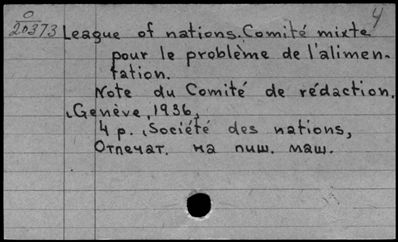 0
20373
4
League of nations. Comité mixte
pour le problème de l'alimen-
tation.
Note du Comité de rédaction.
Genève, 1936,
4 p. Société des nations,
Отпечат. на пиш. маш.